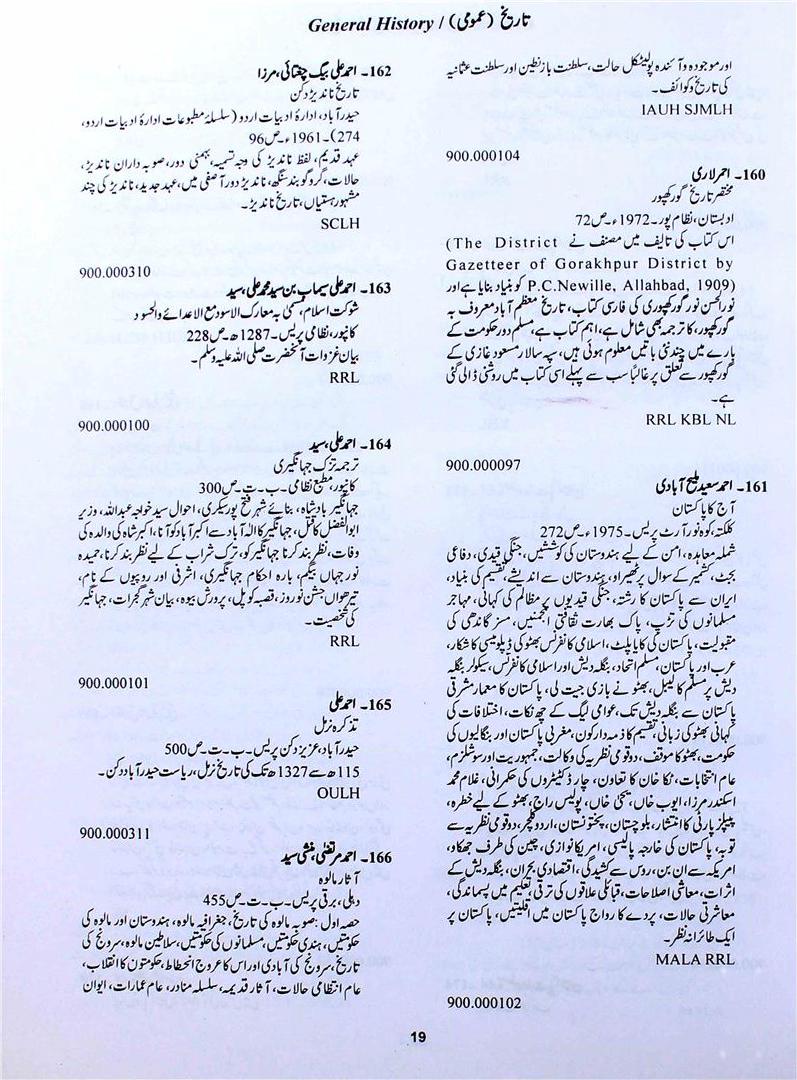 General History / تاریخ (عمومی)
اور موجودہ و آئندہ پولیٹکل حالت، سلطنت بازنطین اور سلطنت عثمانیہ
کی تاریخ و کوائف۔
IAUH SJMLH
900.000104
160۔ احمر لاری
مختصر تاریخ گورکھپور
ادبستان، نظام پور۔ 1972ء۔ ص 72
اس کتاب کی تالیف میں مصنف نے (The District
Gazetteer of Gorakhpur District by
P.C.Newille, Allahbad, 1909) کو بنیاد بنایا ہے اور
نورالحسن نور گورکھپوری کی فارسی کتاب، تاریخ معظم آباد معروف بہ
گورکھپور، کا ترجمہ بھی شامل ہے، اہم کتاب ہے، مسلم دور حکومت کے
بارے میں چند نئی باتیں معلوم ہوتی ہیں، سپہ سالار مسعود غازی کے
گورکھپور سے تعلق پر غالباً سب سے پہلے اسی کتاب میں روشنی ڈالی گئی
ہے۔
RRL KBL NL
900.000097
161۔ احمد سعید ملیح آبادی
آج کا پاکستان
کلکتہ، کوہ نور آرٹ پریس۔ 1975ء۔ ص 272
شملہ معاہدہ، امن کے لیے ہندوستان کی کوششیں، جنگی قیدی، دفاعی
بجٹ، کشمیر کے سوال پر ٹھیراو، ہندوستان سے اندیشے، تقسیم کی بنیاد،
ایران سے پاکستان کا رشتہ، جنگی قیدیوں پر مظالم کی کہانی، مہاجر
مسلمانوں کی تڑپ، پاک بھارت ثقافتی انجمنیں، مسز گاندھی کی
مقبولیت، پاکستان کی کایا پلٹ، اسلامی کانفرنس بھٹو کی ڈپلومیسی کا شکار،
عرب اور پاکستان، مسلم اتحاد، بنگلہ دیش اور اسلامی کانفرنس، سیکولر بنگلہ
دیش پر مسلم کا لیبل، بھٹو نے بازی جیت لی، پاکستان کا معمار مشرقی
پاکستان سے بنگلہ دیش تک، عوامی لیگ کے چھ نکات، اختلافات کی
کہانی بھٹو کی زبانی، تقسیم کا ذمہ دار کون، مغربی پاکستان اور بنگالیوں کی
حکومت، بھٹو کا موقف، دو قومی نظریہ کی وکالت، جمہوریت اور سوشلزم،
عام انتخابات، ٹکا خان کا تعاون، چار ڈکٹیٹروں کی حکمرانی، غلام محمد
اسکندر مرزا، ایوب خاں، یحییٰ خاں، پولیس راج، بھٹو کے لیے خطرہ،
پیپلز پارٹی کا انتشار، بلوچستان، پختونستان، اردو کلچر، دو قومی نظریہ سے
توبہ، پاکستان کی خارجہ پالیسی، امریکا نوازی، چین کی طرف جھکاو،
امریکہ سے ان بن، روس سے کشیدگی، اقتصادی بحران، بنگلہ دیش کے
اثرات، معاشی اصلاحات، قبائلی علاقوں کی ترقی، تعلیم میں پسماندگی،
معاشرتی حالات، پردے کا رواج پاکستان میں اقلیتیں، پاکستان پر
ایک طائرانہ نظر۔
MALA RRL
900.000102
162۔ احمد علی بیگ چغتائی، مرزا
تاریخ ناندیڑ دکن
حیدرآباد، ادارۂ ادبیات اردو (سلسلۂ مطبوعات ادارۂ ادبیات اردو،
274)۔ 1961ء۔ ص 96
عہد قدیم، لفظ ناندیڑ کی وجہ تسمیہ، بہمنی دور، صوبہ داران ناندیڑ،
حالات، گرو گوبند سنگھ، ناندیڑ دور آصفی میں، عہد جدید، ناندیڑ کی چند
مشہور ہستیاں، تاریخ ناندیڑ۔
SCLH
900.000310
163۔ احمد علی سیماب بن سید محمد علی، سید
شوکت اسلام، مسمیٰ بہ معارک الاسود مع الاعدائے والحسود
کانپور، نظامی پریس۔ 1287ھ۔ ص 228
بیان غزوات آنحضرت صلی اللہ علیہ وسلم۔
RRL
900.000100
164۔ احمد علی، سید
ترجمہ تزک جہانگیری
کانپور، مطبع نظامی۔ ب۔ت۔ ص 300
جہانگیر بادشاہ، بنائے شہر فتح پور سیکری، احوال سید خواجہ عبداللہ، وزیر
ابوالفضل کا قتل، جہانگیر کا الہٰ آباد سے اکبر آباد کو آنا، اکبر شاہ کی والدہ کی
وفات، نظر بند کرنا جہانگیر کو، ترک شراب کے لیے نظر بند کرنا، حمیدہ
نور جہاں بیگم، بارہ احکام جہانگیری، اشرفی اور روپیوں کے نام،
تیرھواں جشن نو روز، قصبہ کوپل، پرورش بیوہ، بیان شہر گجرات، جہانگیر
کی شخصیت۔
RRL
900.000101
165۔ احمد علی
تذکرہ نرمل
حیدرآباد، عزیز دکن پریس۔ ب۔ت۔ ص 500
115ھ سے 1327ھ تک کی تاریخ نرمل، ریاست حیدرآباد دکن۔
OULH
900.000311
166۔ احمد مرتضیٰ، منشی سید
آثار مالوہ
دہلی، برقی پریس۔ ب۔ت۔ ص 455
حصہ اول: صوبہ مالوہ کی تاریخ، جغرافیہ مالوہ، ہندوستان اور مالوہ کی
حکومتیں، ہندی حکومتیں، مسلمانوں کی حکومتیں، سلاطین مالوہ، سرونج کی
تاریخ، سرونج کی آبادی اور اس کا عروج انحطاط، حکومتوں کا انقلاب،
عام انتظامی حالات، آثار قدیمہ، سلسلہ منادر، عام عمارات، ایوان
19